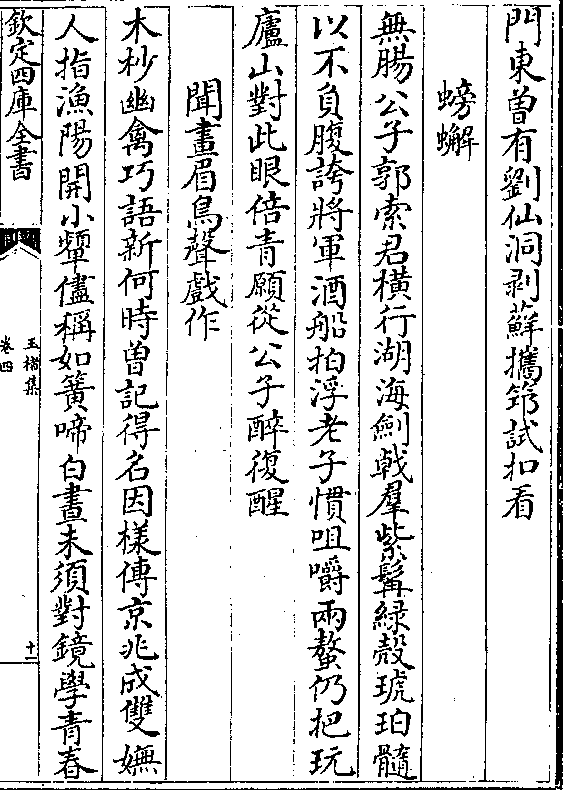 門東曽有劉仙洞剥蘚攜筇試扣看
螃蠏
無腸公子郭索君横行湖海劍戟羣紫髯緑殻琥珀髓
以不負腹誇將軍酒船拍浮老子慣咀嚼兩螯仍把玩
廬山對此眼倍青願從公子醉復醒
聞畫眉鳥聲戲作
木杪幽禽巧語新何時曽記得名因様傳京兆成雙嫵
人指漁陽開小顰儘稱如簧啼白晝未須對鏡學青春
欽定四庫全書
玉楮集
卷四
十二